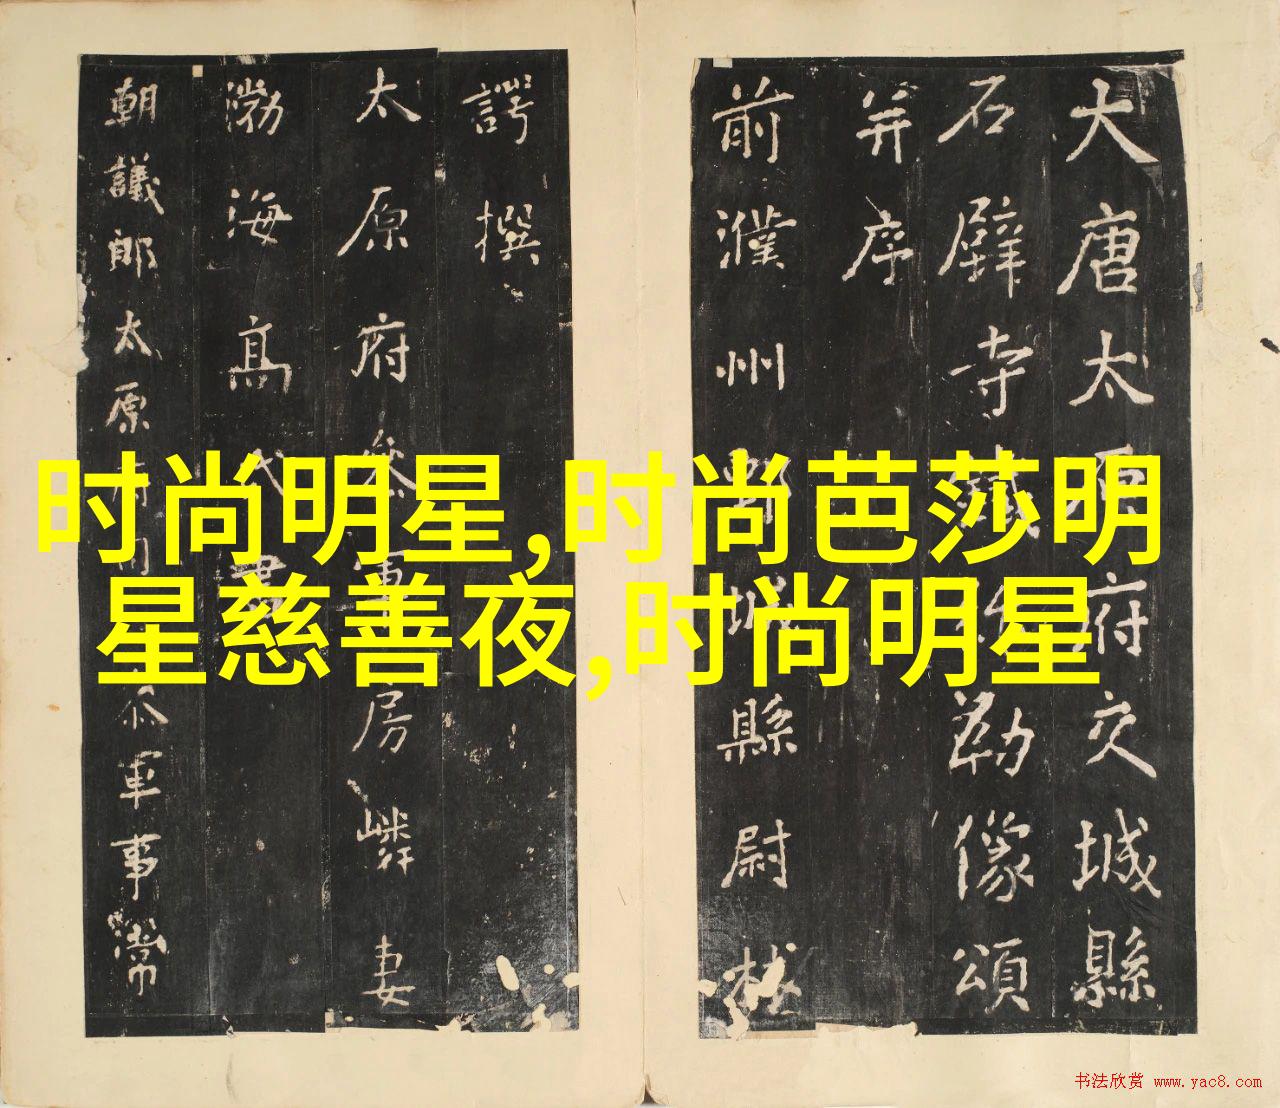 大唐太原府交城縣
石壁寺鐵彌勒像頌
并序
前濮州鄄城縣尉林
諤撰
太原府叅軍房嶙妻
渤海髙氏書
朝議郎太原府司叅軍事常
时尚明星,时尚芭莎明
星慈善夜,时尚明星
书法欣赏 www.yac8.com